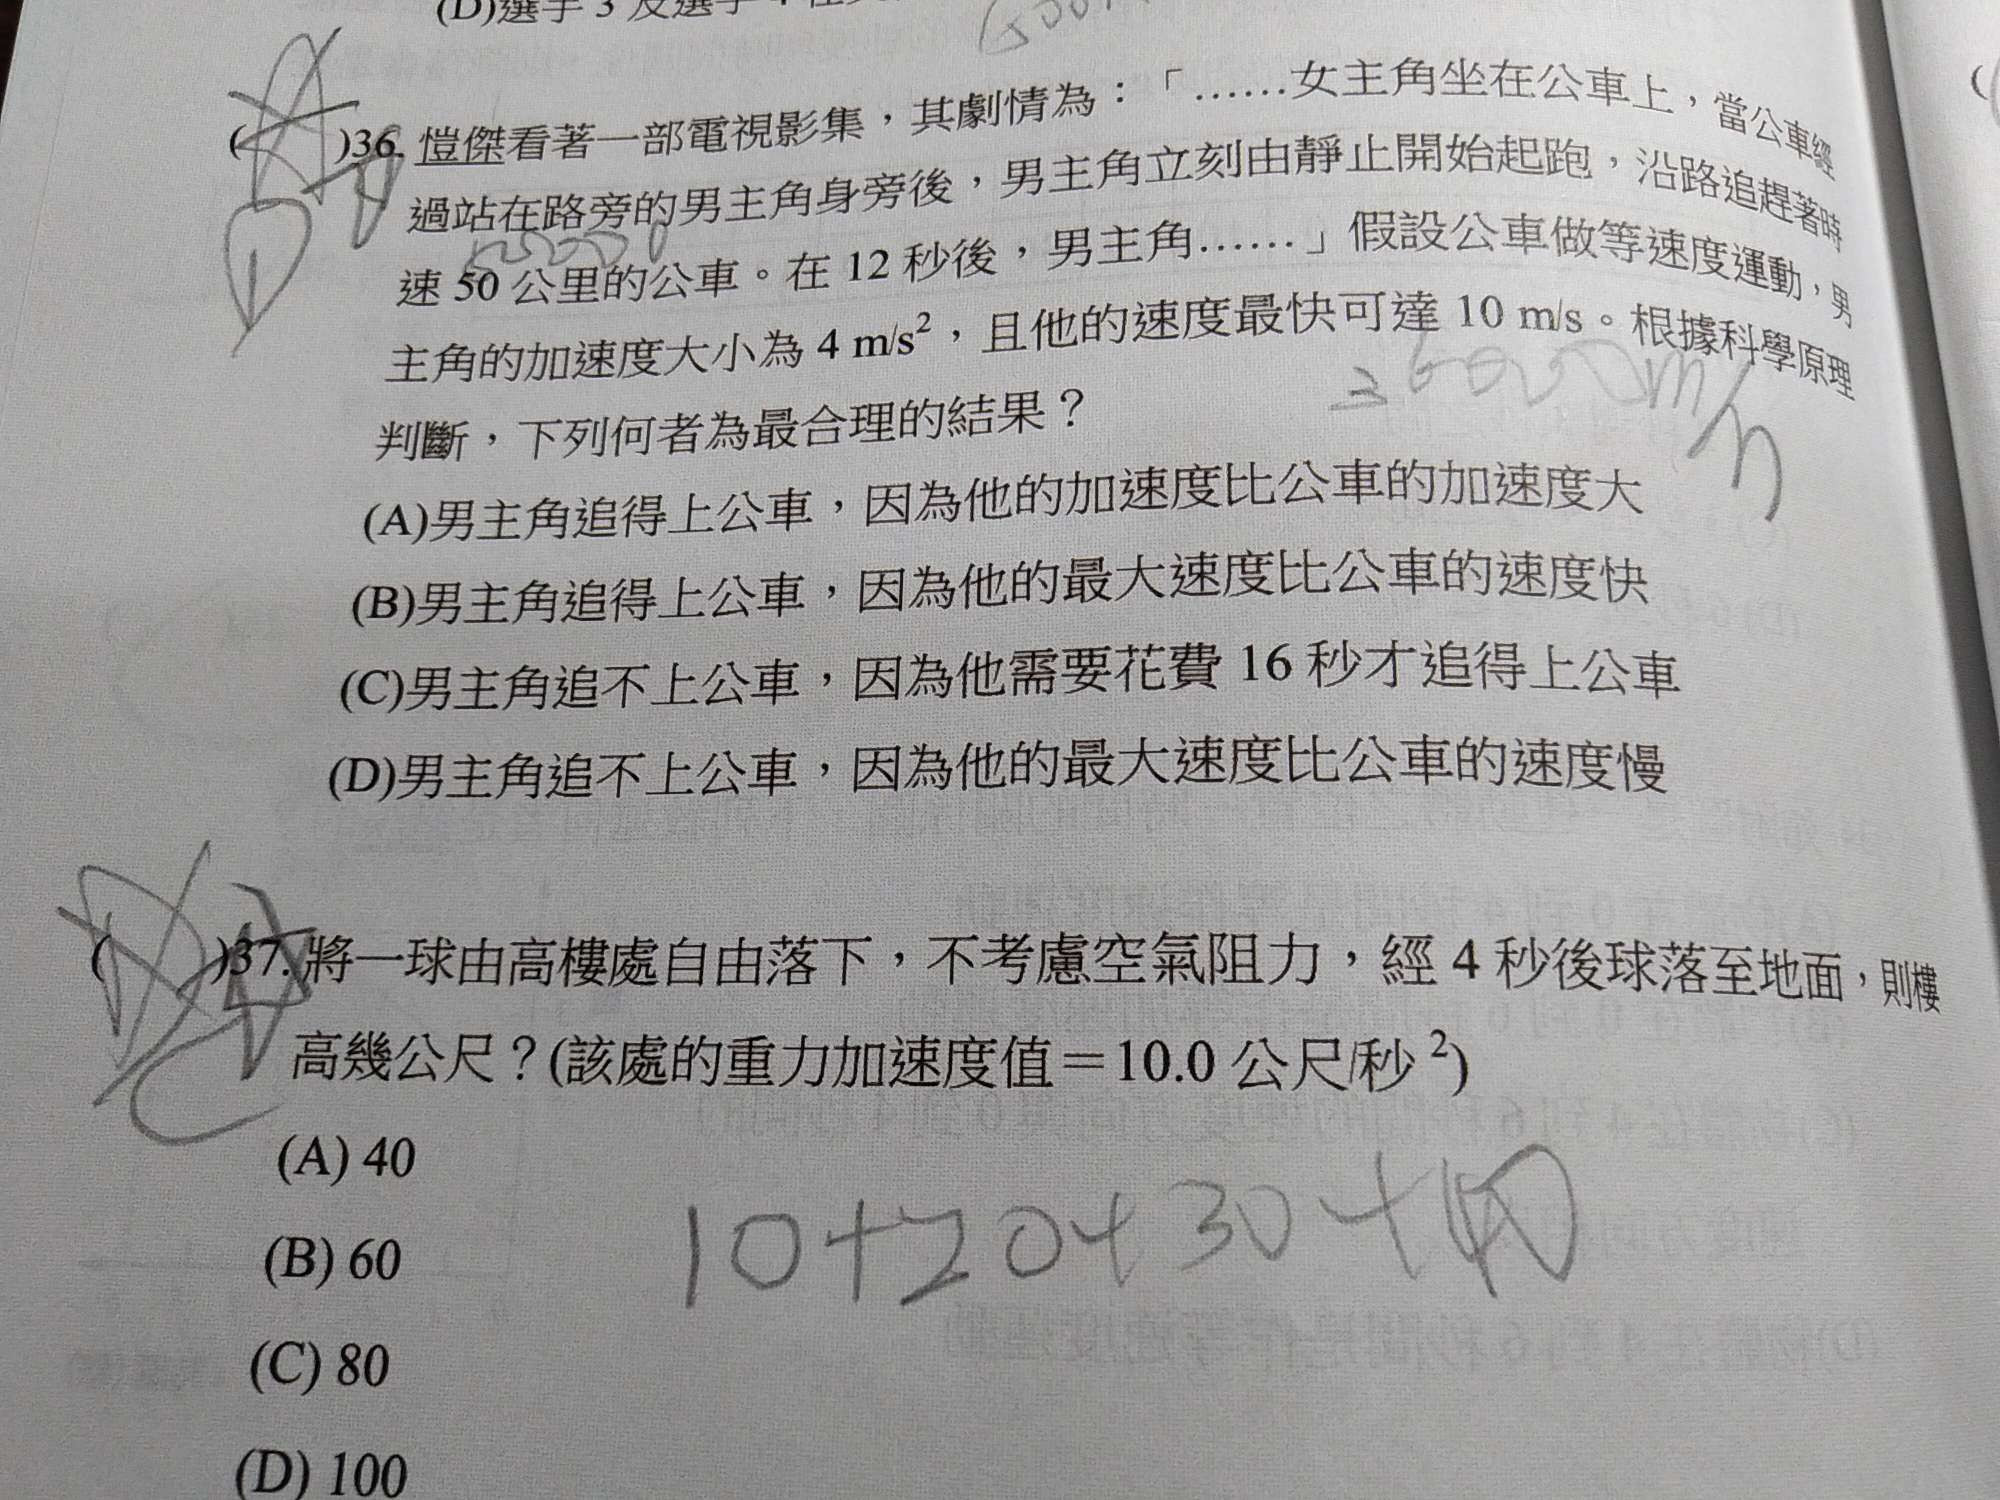 (D)選手 3 及選手
( )36. 愷傑看著一部電視影集，其劇情為：「……女主角坐在公車上，當公車經
過站在路旁的男主角身旁後，男主角立刻由靜止開始起跑，沿路追趕著時
速 50 公里的公車。在 12 秒後，男主角……」假設公車做等速度運動，男
主角的加速度大小為 4 m/s²，且他的速度最快可達 10 m/s。根據科學原理
36000 m/h
判斷，下列何者為最合理的結果？
(A)男主角追得上公車，因為他的加速度比公車的加速度大
(B)男主角追得上公車，因為他的最大速度比公車的速度快
(C)男主角追不上公車，因為他需要花費 16 秒才追得上公車
(D)男主角追不上公車，因為他的最大速度比公車的速度慢
( )37. 將一球由高樓處自由落下，不考慮空氣阻力，經 4 秒後球落至地面，則樓
高幾公尺？(該處的重力加速度值＝10.0 公尺/秒²)
(A) 40
10+20+30+40
(B) 60
(C) 80
(D) 100